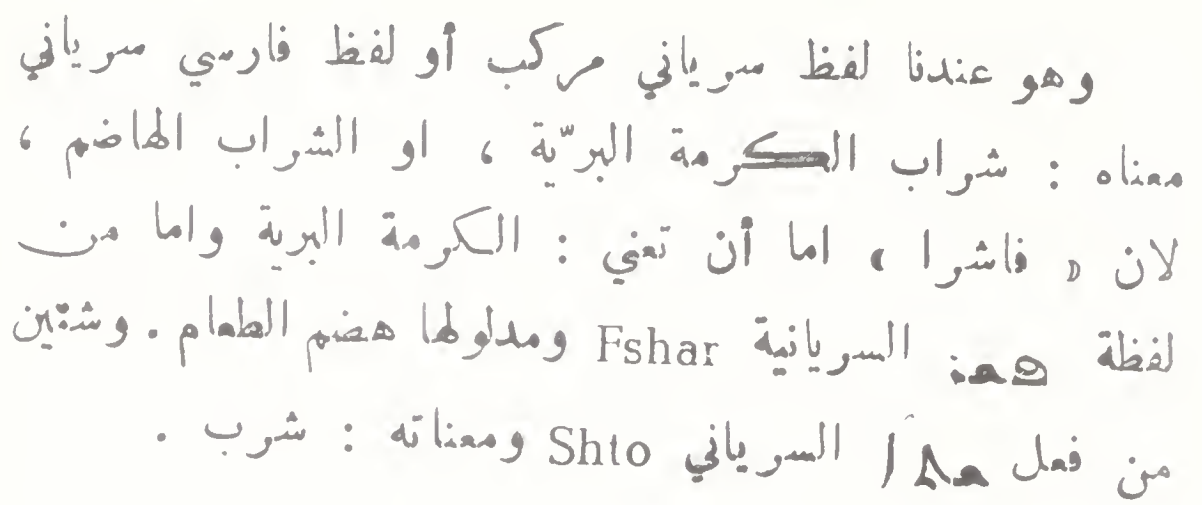 وهو عندنا لفظ سرياني مركب أو لفظ فارسي سرياني
معناه : شراب الكرمة البرّية ، او الشراب الهاضم ،
لان « فاشرا » اما أن تعني : الكرمة البرية واما من
لفظة ܦܫܪ السريانية Fshar ومدلولها هضم الطعام . وشتّين
من فعل ܫܬܐ السرياني Shto ومعناته : شرب .